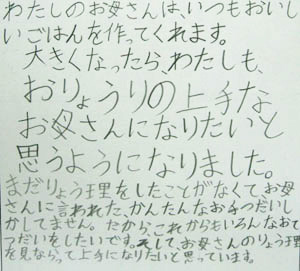 わたしのお母さんは、いつもおいし
いごはんを作ってくれます。
大きくなったら、わたしも、
おりょうりの上手な
お母さんになりたいと
思うようになりました。
まだりょう理をしたことがなくて、お母
さんに言われた、かんたんなお手つだいし
かしてません。だから、これからもいろんなおて
つだいをしたいです。そして、お母さんのりょう理
を見ならって上手になりたいと思っています。